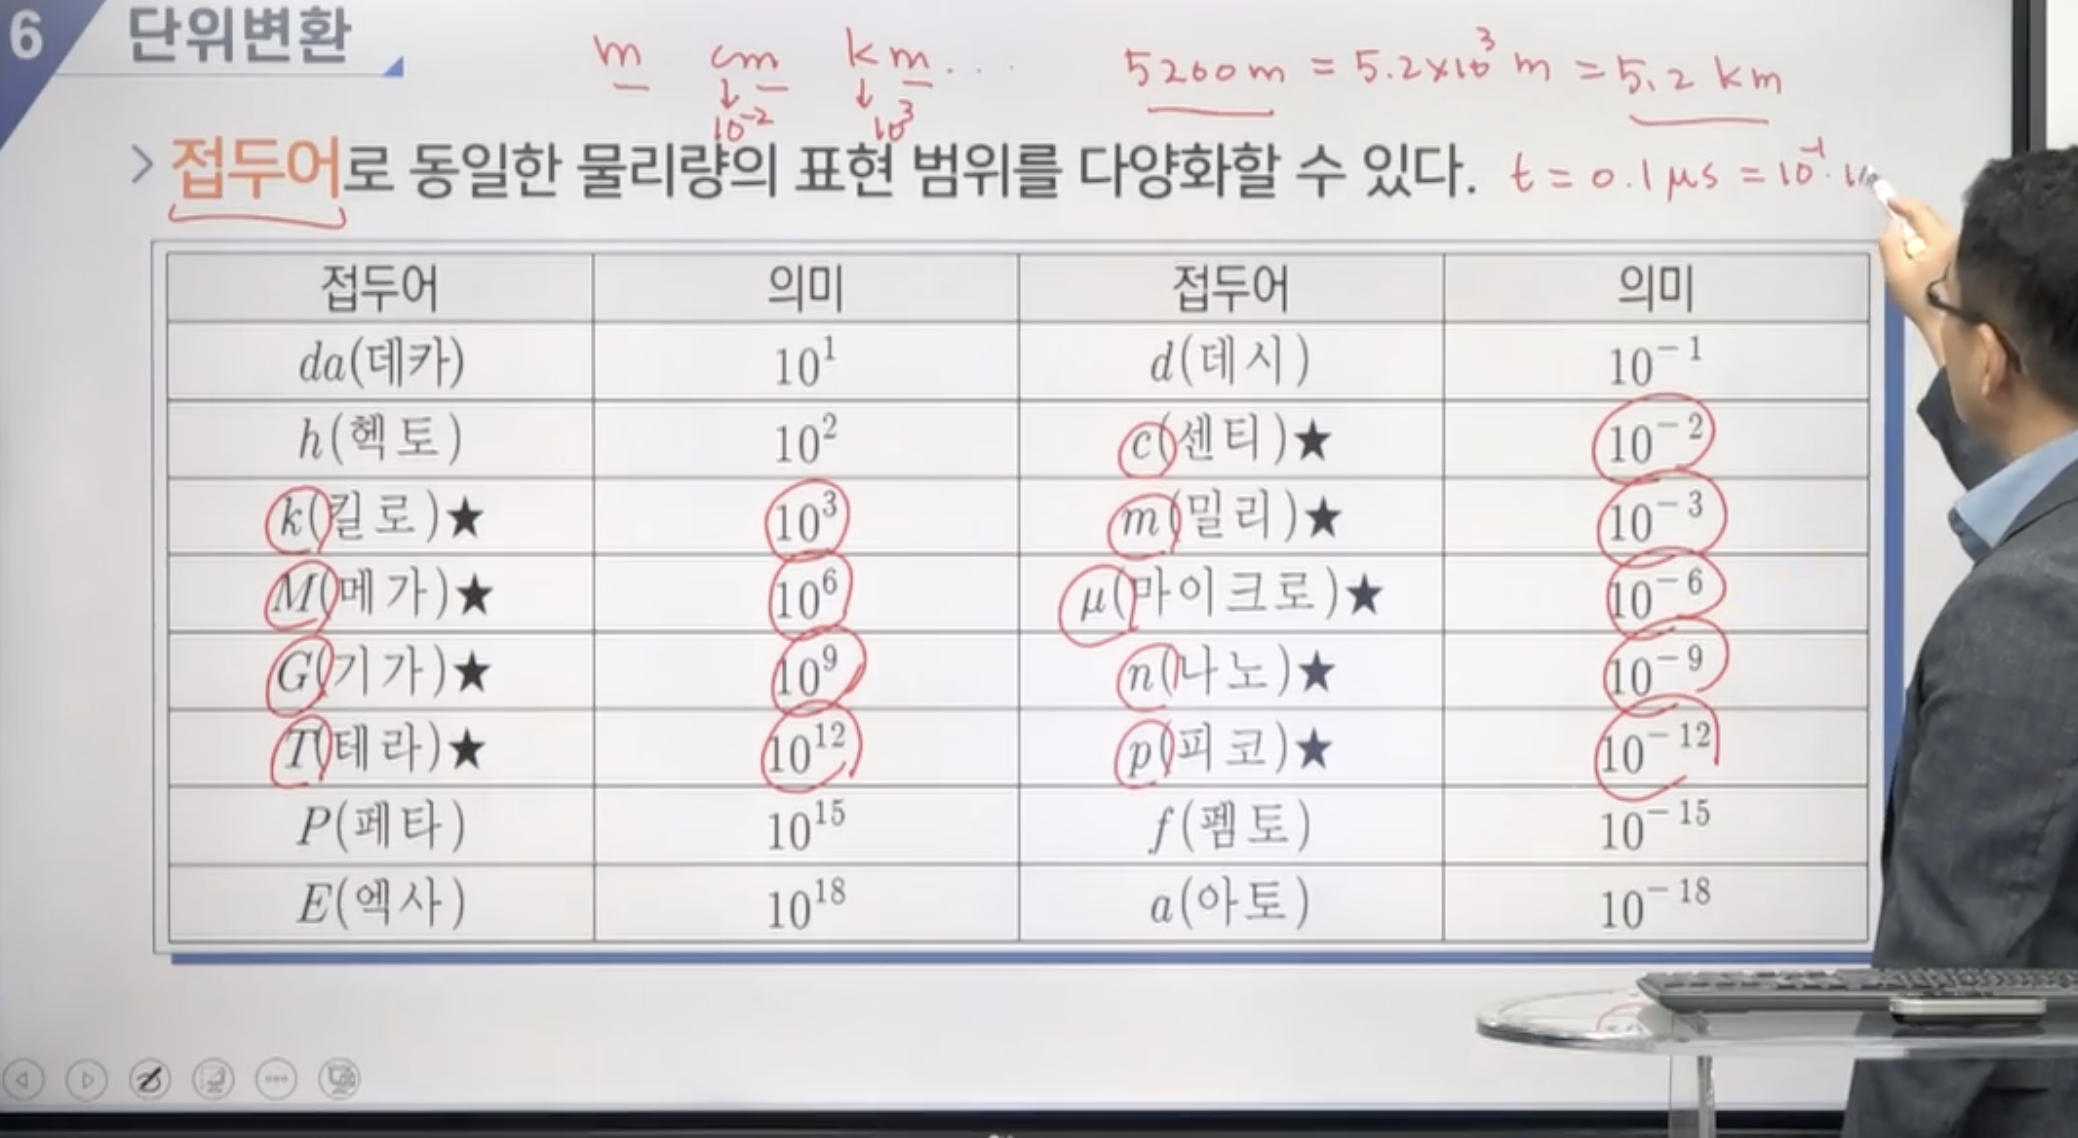 6 단위변환
m cm km... 5200m = 5.2×10³ m = 5.2 km
10⁻² 10³
> 접두어로 동일한 물리량의 표현 범위를 다양화할 수 있다. t = 0.1 μs = 10⁻¹·
접두어 의미 접두어 의미
da(데카) 10¹ d(데시) 10⁻¹
h(헥토) 10² c(센티)★ 10⁻²
k(킬로)★ 10³ m(밀리)★ 10⁻³
M(메가)★ 10⁶ μ(마이크로)★ 10⁻⁶
G(기가)★ 10⁹ n(나노)★ 10⁻⁹
T(테라)★ 10¹² p(피코)★ 10⁻¹²
P(페타) 10¹⁵ f(펨토) 10⁻¹⁵
E(엑사) 10¹⁸ a(아토) 10⁻¹⁸